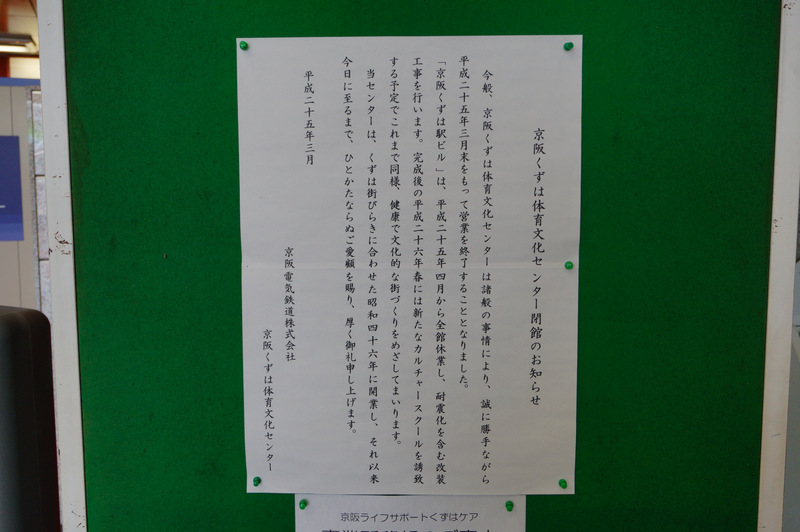 京阪くずは体育文化センター閉館のお知らせ
今般、京阪くずは体育文化センターは諸般の事情により、誠に勝手ながら
平成二十五年三月末をもって営業を終了することとなりました。
「京阪くずは駅ビル」は、平成二十五年四月から全館休業し、耐震化を含む改装
工事を行います。完成後の平成二十六年春には新たなカルチャースクールを誘致
する予定でこれまで同様、健康で文化的な街づくりをめざしてまいります。
当センターは、くずは街びらきに合わせた昭和四十六年に開業し、それ以来
今日に至るまで、ひとかたならぬご愛顧を賜り、厚く御礼申し上げます。
平成二十五年三月
京阪電気鉄道株式会社
京阪くずは体育文化センター
京阪ライフサポートくずはケア